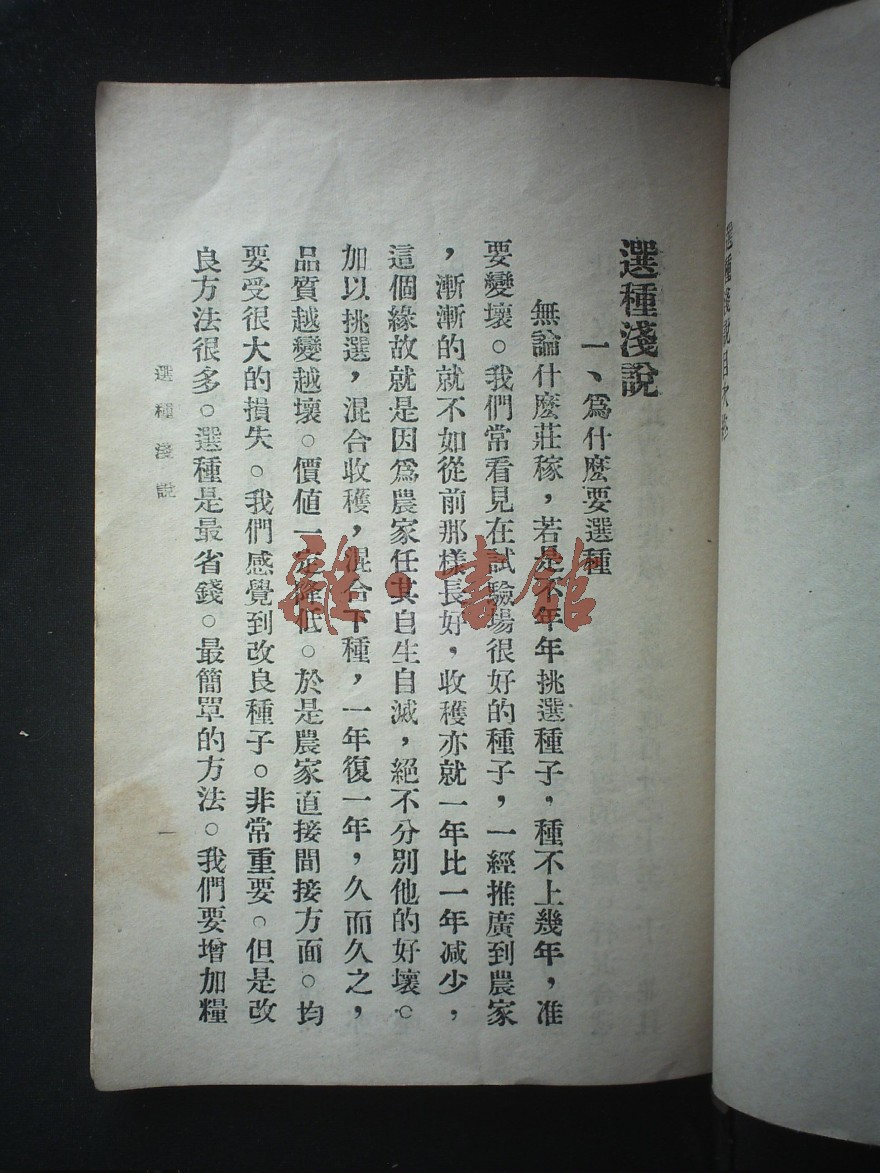 選種淺說
一、爲什麽要選種
無論什麽莊稼，若是不年年挑選種子，種不上幾年，准
要變壞。我們常看見在試驗場很好的種子，一經推廣到農家
，漸漸的就不如從前那樣長好，收穫亦就一年比一年減少，
這個緣故就是因爲農家任其自生自滅，絕不分別他的好壞。
加以挑選，混合收穫，混合下種，一年復一年，久而久之，
品質越變越壞。價値一定降低。於是農家直接間接方面。均
要受很大的損失。我們感覺到改良種子。非常重要。但是改
良方法很多。選種是最省錢。最簡單的方法。我們要增加糧
選種淺說
一
雜·書館
選種淺說目次